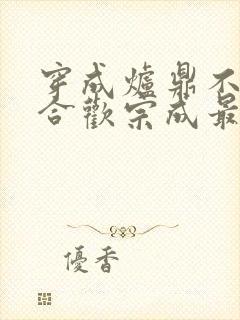 穿成爐鼎不
合歡宗成最
優香